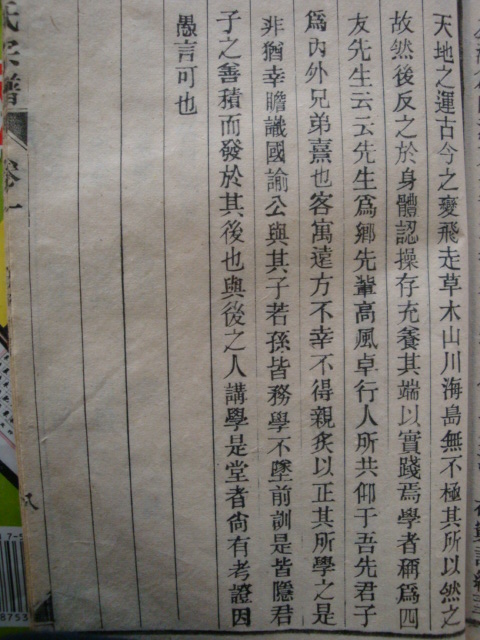 天地之運古今之變飛走草木山川海島無不極其所以然之
故然後反之於身體認操存充養其端以實踐焉學者稱為四
友先生云云先生為鄉先輩高風卓行人所共仰于吾先君子
為內外兄弟熹也客寓遠方不幸不得親炙以正其所學之是
非猶幸瞻識國諭公與其子若孫皆務學不墜前訓是皆隱君
子之善積而發於其後也與後之人講學是堂者尙有考證因
愚言可也
氏宗譜
卷一
八